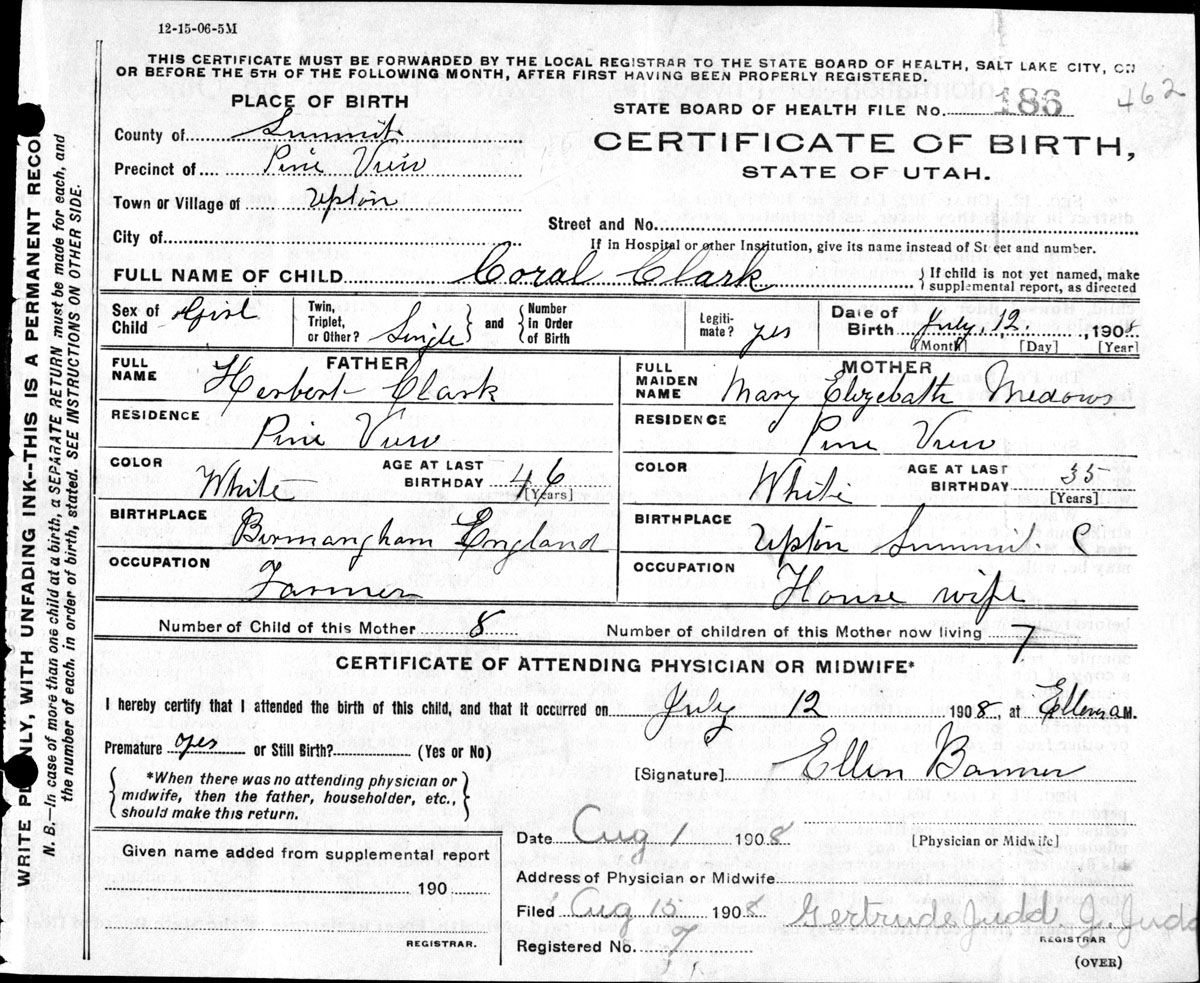 12-15-06-5M
THIS CERTIFICATE MUST BE FORWARDED BY THE LOCAL REGISTRAR TO THE STATE BOARD OF HEALTH, SALT LAKE CITY, ON
OR BEFORE THE 5TH OF THE FOLLOWING MONTH, AFTER FIRST HAVING BEEN PROPERLY REGISTERED.
PLACE OF BIRTH
STATE BOARD OF HEALTH FILE No. 186 462
County of Summit
CERTIFICATE OF BIRTH,
Precinct of Pine View
STATE OF UTAH.
Town or Village of Upton
Street and No.
City of
If in Hospital or other Institution, give its name instead of Street and number.
FULL NAME OF CHILD Coral Clark } If child is not yet named, make supplemental report, as directed
Sex of Child Girl Twin, Triplet, or Other? Single } and { Number in Order of Birth Legitimate? yes Date of Birth July, 12, 1908
[Month] [Day] [Year]
FATHER
FULL NAME Herbert Clark
RESIDENCE
Pine View
COLOR White AGE AT LAST BIRTHDAY 46 [Years]
BIRTHPLACE
Birmangham England
OCCUPATION
Farmer
MOTHER
FULL MAIDEN NAME Mary Elizebath Medows
RESIDENCE
Pine View
COLOR White AGE AT LAST BIRTHDAY 35 [Years]
BIRTHPLACE
Upton Summit C
OCCUPATION
House wife
Number of Child of this Mother 8
Number of children of this Mother now living 7
CERTIFICATE OF ATTENDING PHYSICIAN OR MIDWIFE*
I hereby certify that I attended the birth of this child, and that it occurred on July 12 1908, at Elleven a M.
Premature yes or Still Birth? (Yes or No)
[Signature] Ellen Banner
*When there was no attending physician or
midwife, then the father, householder, etc.,
should make this return.
Date Aug 1 1908
[Physician or Midwife]
Given name added from supplemental report
190
REGISTRAR.
Address of Physician or Midwife
Filed Aug 15 1908 Gertrude Judd G. Judd
REGISTRAR
Registered No. 7
(OVER)
WRITE PLAINLY, WITH UNFADING INK--THIS IS A PERMANENT RECO
N. B.—In case of more than one child at a birth, a SEPARATE RETURN must be made for each, and
the number of each, in order of birth, stated. SEE INSTRUCTIONS ON OTHER SIDE.